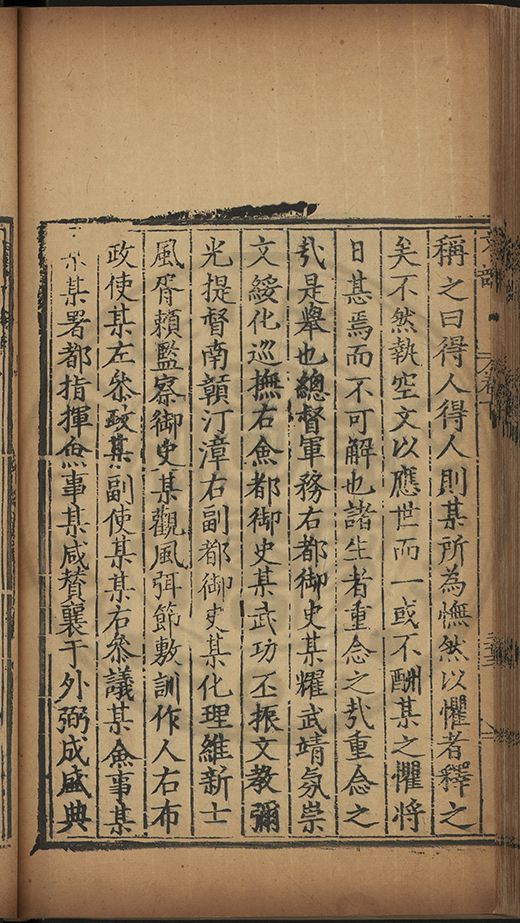 稱之曰得人得人則某所為憮然以懼者釋之
矣不然執空文以應世而一或不酬某之懼將
日甚焉而不可解也諸生者重念之㢤重念之
㢤是舉也總督軍務右都御史某耀武靖氛崇
文綏化巡撫右僉都御史某武功丕振文教彌
光提督南贛汀漳右副都御史某化理維新士
風胥頼監察御史某觀風弭節敷訓作人右布
政使某左叅政某副使某某右叅議某僉事某
某署都指揮僉事某咸賛襄于外弼成盛典